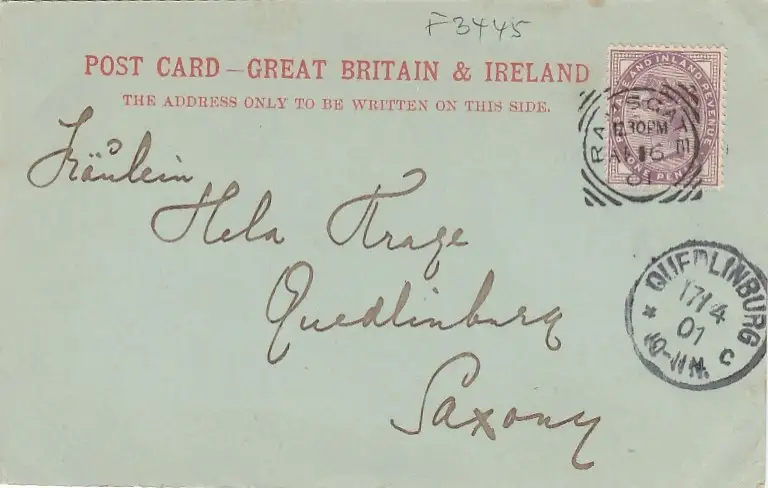 F3445
POST CARD – GREAT BRITAIN & IRELAND
THE ADDRESS ONLY TO BE WRITTEN ON THIS SIDE.
POSTAGE AND INLAND REVENUE
ONE PENNY
RAMSGATE
12.30PM
AP 16
01
Fräulein
Hela Krage
Quedlinburg
Saxony
QUEDLINBURG
17/4
01
* 10-11N. c